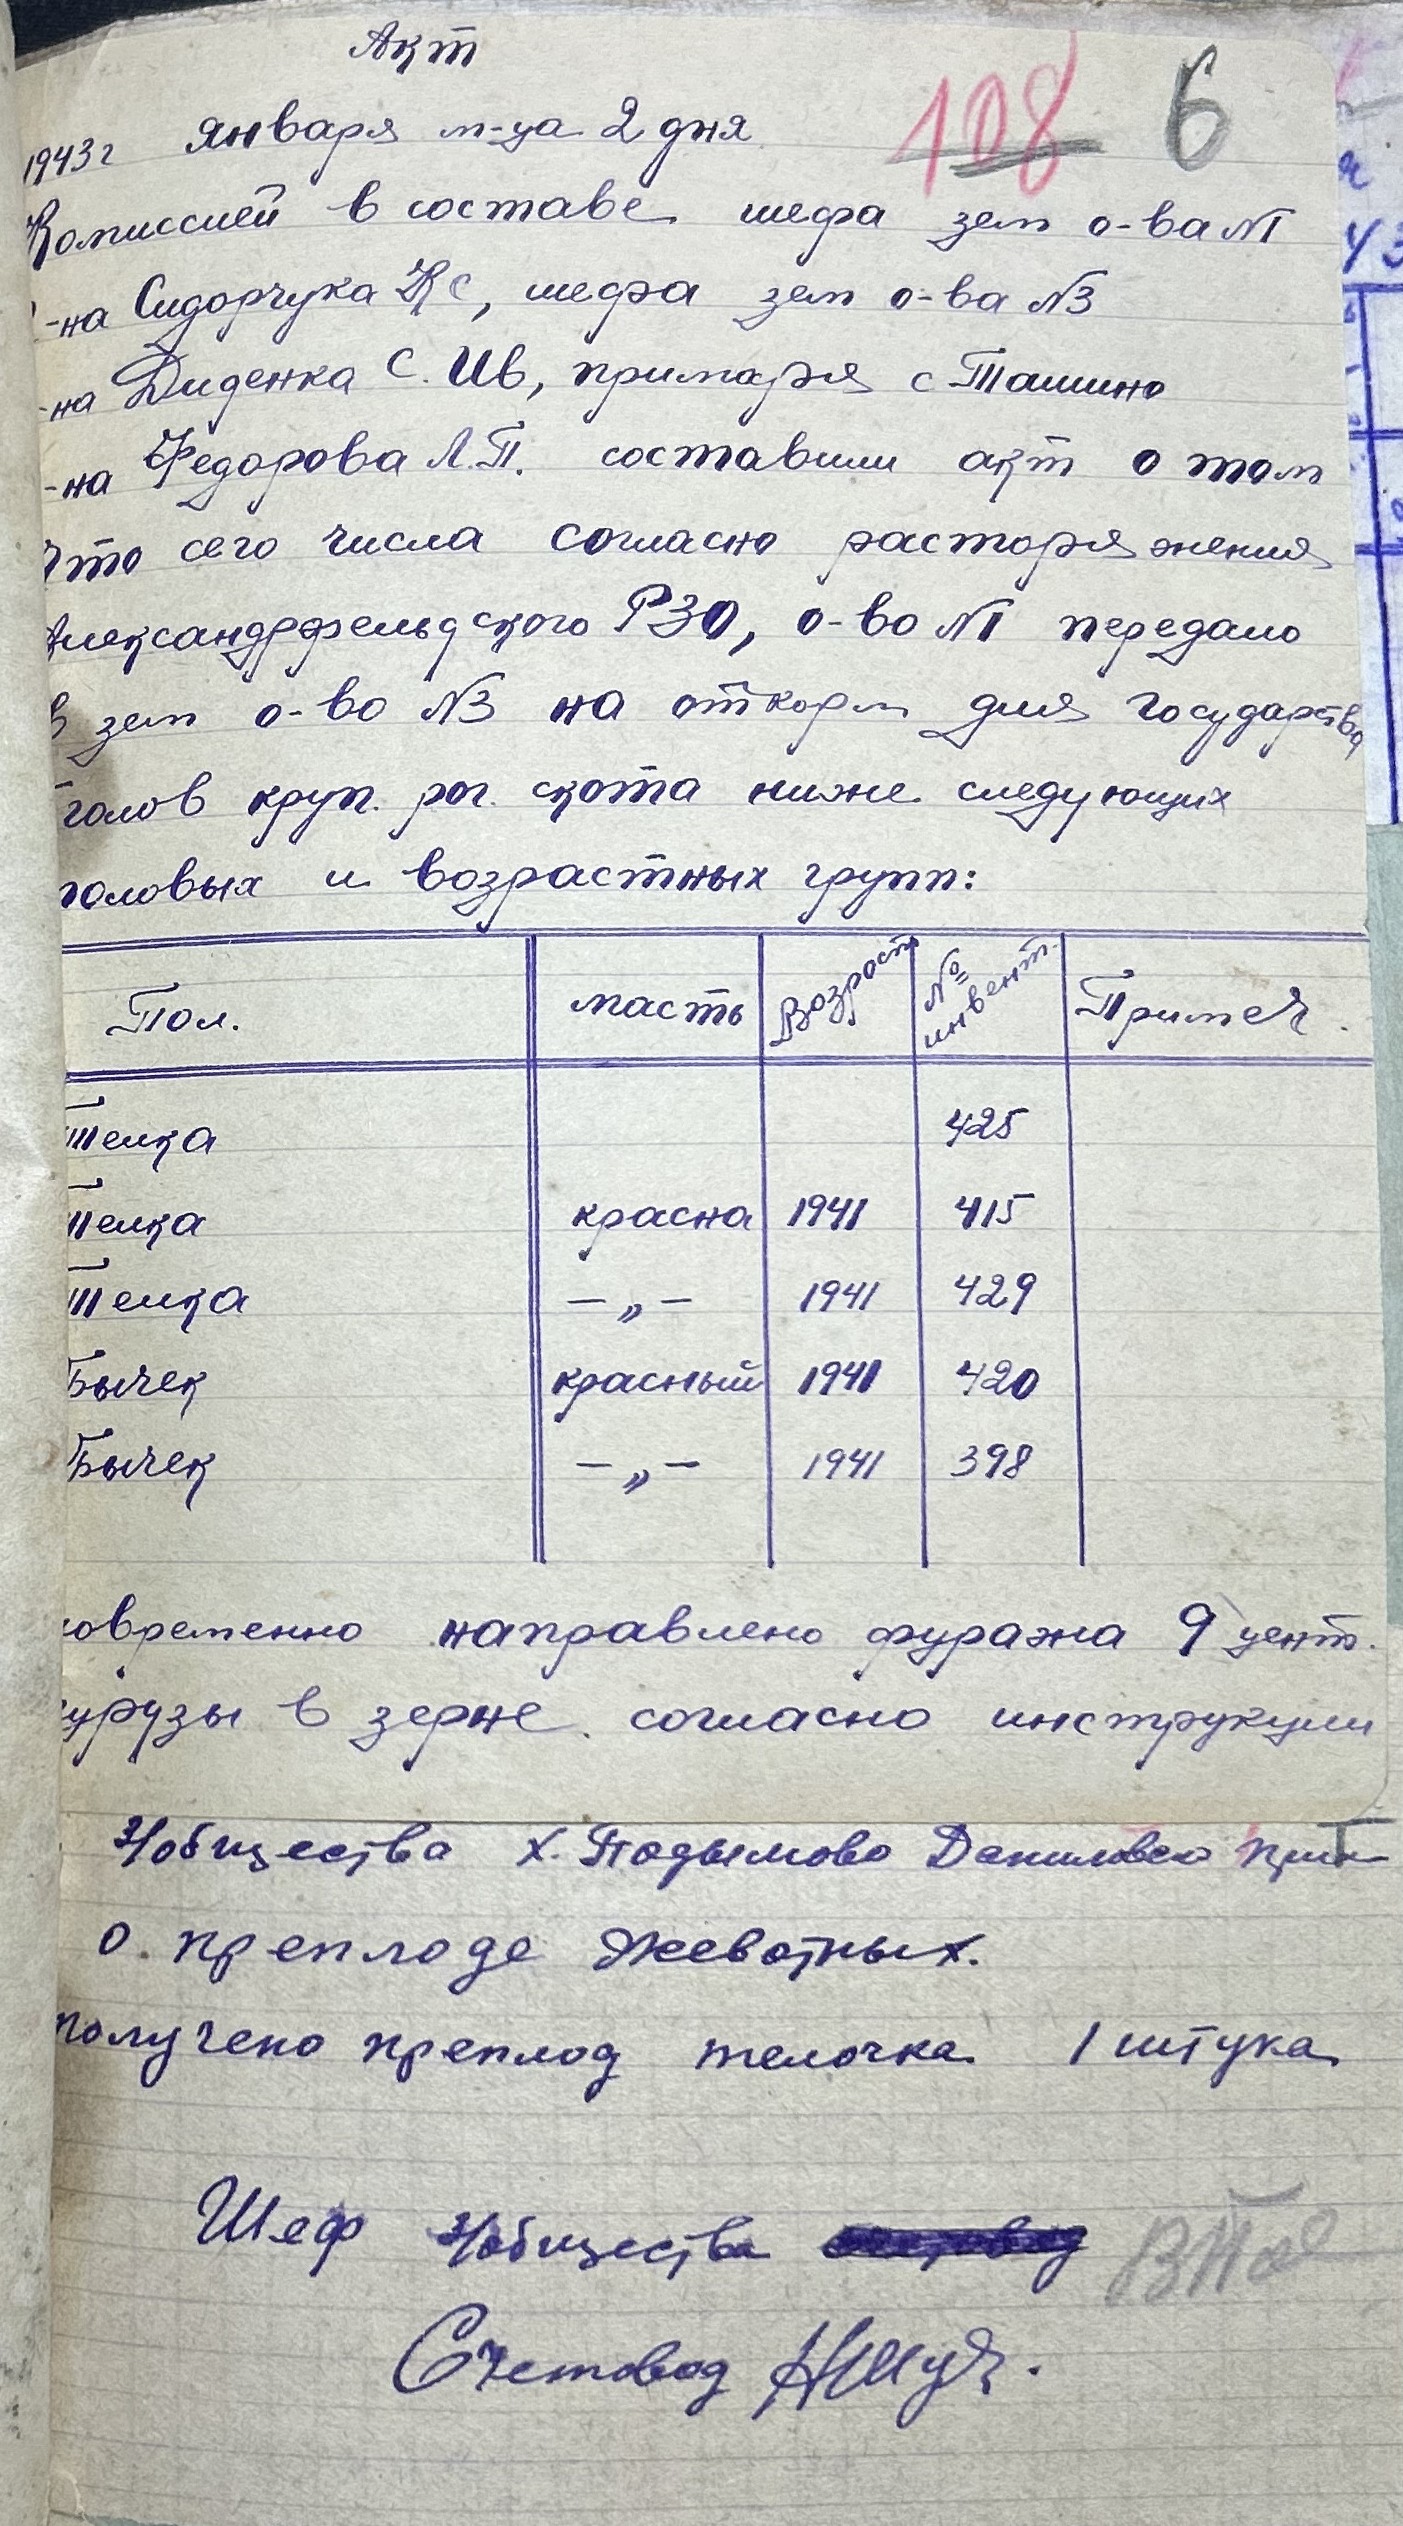 Акт
108 6
1943г января м-ца 2 дня
Комиссией в составе шефа зем о-ва №1
-на Сидорчука КС, шефа зем о-ва №3
-на Диденка С. Ив, примаря с Ташино
-на Федорова Л.П. составили акт о том
что сего числа согласно расторяжения
Александрфельдского РЗО, о-во №1 передало
в зем о-во №3 на откорм для государства
голов круп. рог. скота ниже следующих
половых и возрастных групп:
Пол. масть Возраст № инвент. Примеч.
Телка 425
Телка красна 1941 415
Телка —„— 1941 429
Бычек красный 1941 420
Бычек —„— 1941 398
новременно направлено фуража 9 цент.
курузы в зерне согласно инструкции
З/общества х. Подымово Даниловско
о преплоде жевотных.
получено преплод телочка 1 штука
Шеф З/общества
Счетовод